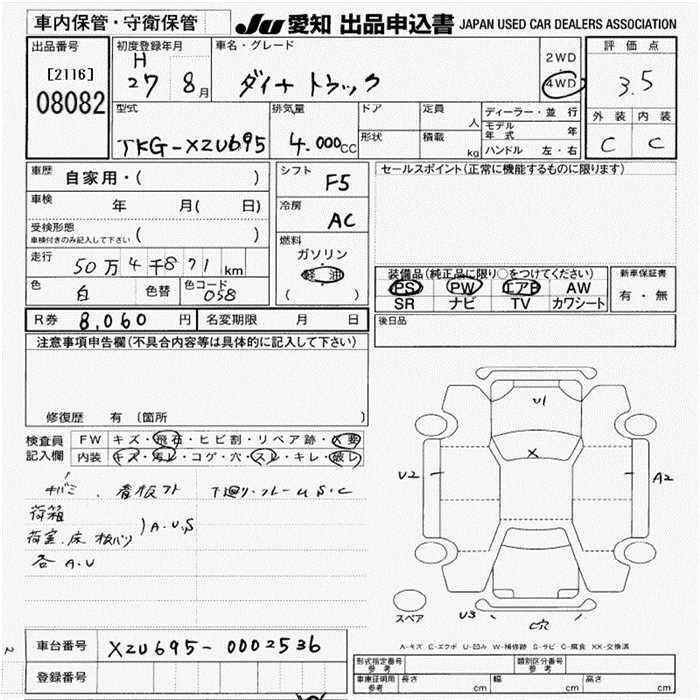 車内保管・守衛保管
JU 愛知 出品申込書 JAPAN USED CAR DEALERS ASSOCIATION
出品番号
[2116]
08082
初度登録年月
H
27 8月
車名・グレード
ダイナ トラック
2WD
4WD
評価点
3.5
外装 内装
C C
型式
TKG-XZU695
排気量
4.000cc
ドア
形状
定員 人
積載 kg
ディーラー・並行
モデル年式 年
ハンドル 左・右
車歴 自家用・( )
車検 年 月( 日)
受検形態
車検付きのみ記入して下さい ( )
走行 50万4千871km
色 白 色替 色コード 058
シフト F5
冷房 AC
燃料
ガソリン
軽油
( )
セールスポイント(正常に機能するものに限ります)
装備品(純正品に限り○をつけてください)
PS PW エアB AW
SR ナビ TV カワシート
新車保証書
有・無
R券 8,060円 名変期限 月 日
後日品
注意事項申告欄(不具合内容等は具体的に記入して下さい)
修復歴 有 (箇所 )
検査員記入欄
FW キズ・飛石・ヒビ割・リペア跡・X要
内装 キズ・汚レ・コゲ・穴・スレ・キレ・破レ
看板アト 下廻り・フレームS・C
荷箱
荷室、床 板バリ )A.U.S
各 A.U
U1
X
U2
A2
U3
穴
スペア
A-キズ E-エクボ U-凹み W-補修跡 S-サビ C-腐食 XX-交換済
車台番号 XZU695-0002536
登録番号
形式指定番号 参考
類別区分番号 参考
車庫証明用 参考 長さ cm 幅 cm 高さ cm